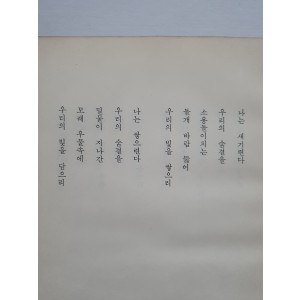 나는 새기련다
우리의 숨결을
소용돌이치는
돌개 바람 뚫어
우리의 빛을 쌓으리
나는 쌓으련다
우리의 숨결을
밀물이 지나간
모래 우물속에
우리의 빛을 담으리